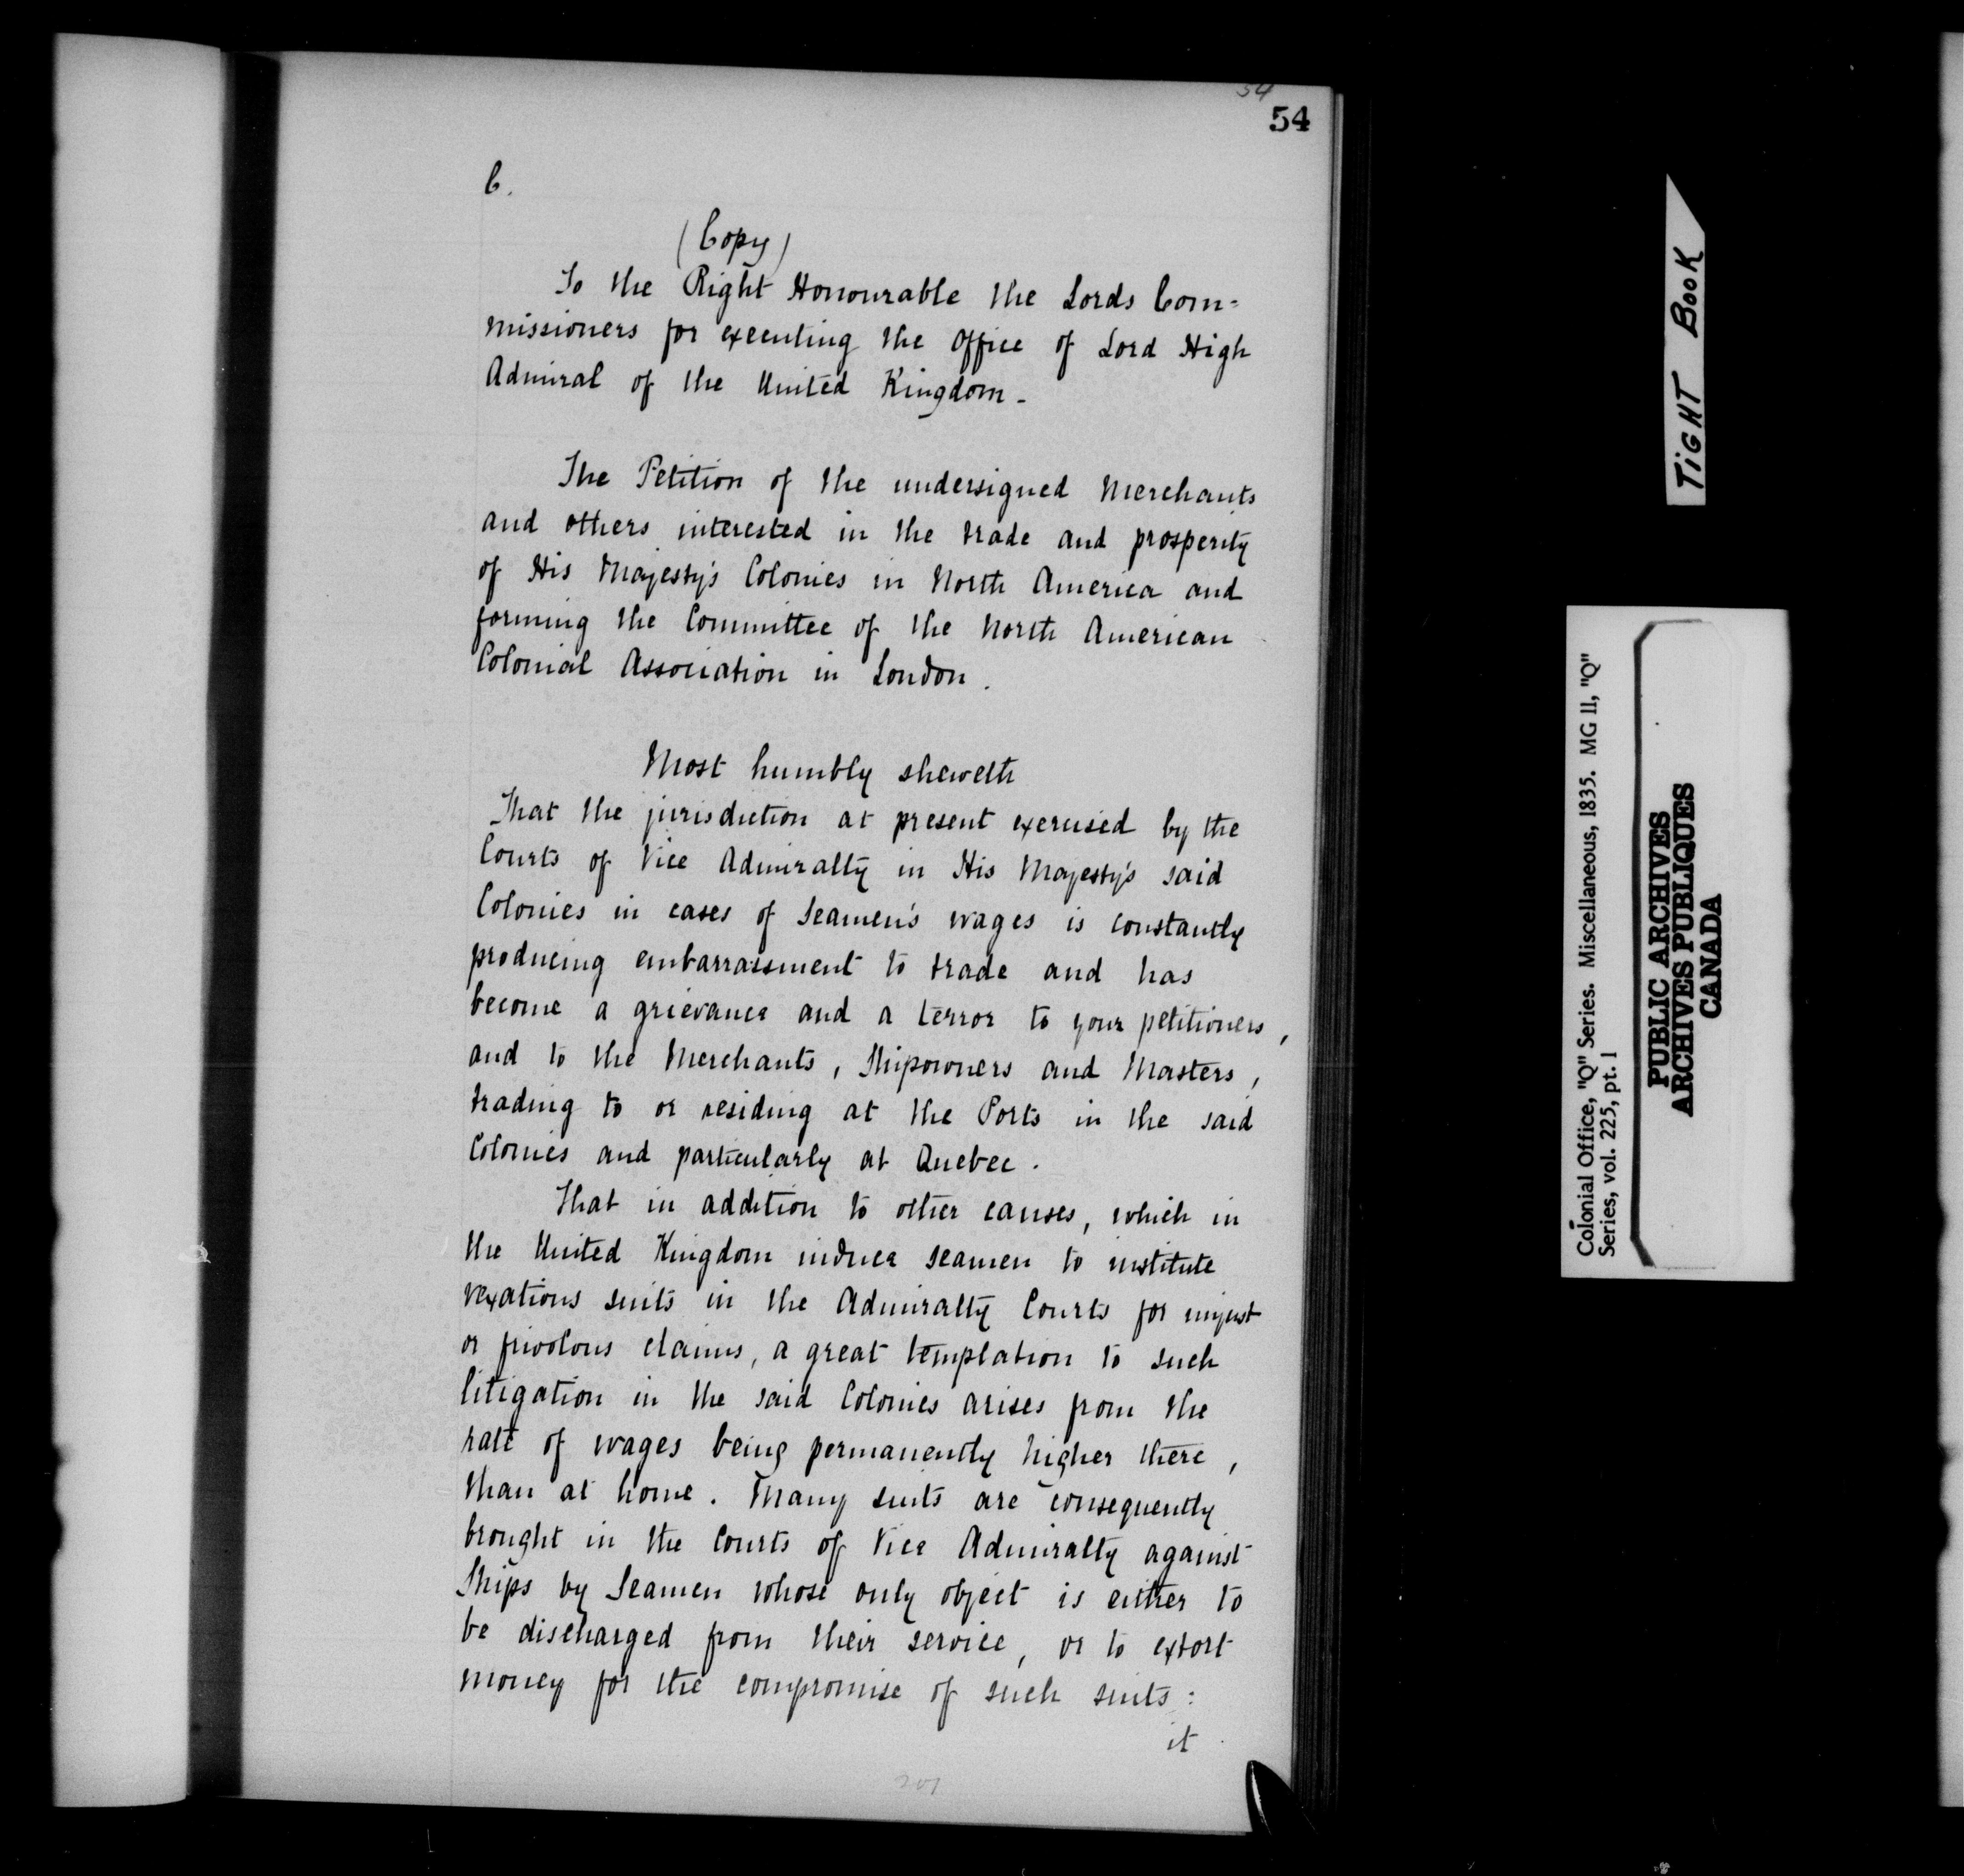 54
54
C.
(Copy)
To the Right Honourable the Lords Com=
missioners for executing the Office of Lord High
Admiral of the United Kingdom -
The Petition of the undersigned Merchants
and others interested in the trade and prosperity
of His Majesty's Colonies in North America and
forming the Committee of the North American
Colonial Association in London.
Most humbly sheweth
That the jurisdiction at present exercised by the
Courts of Vice Admiralty in His Majesty's said
Colonies in cases of Seamen's wages is constantly
producing embarrassment to trade and has
become a grievance and a terror to your petitioners,
and to the Merchants, Shipowners and Masters,
trading to or residing at the Ports in the said
Colonies and particularly at Quebec.
That in addition to other causes, which in
the United Kingdom induce seamen to institute
vexatious suits in the Admiralty Courts for unjust
or frivolous claims, a great temptation to such
litigation in the said Colonies arises from the
rate of wages being permanently higher there,
than at home. Many suits are consequently
brought in the Courts of Vice Admiralty against
Ships by Seamen whose only object is either to
be discharged from their service, or to extort
money for the compromise of such suits:
it
201
TIGHT BOOK
Colonial Office, "Q" Series. Miscellaneous, 1835. MG 11, "Q"
Series, vol. 225, pt. 1
PUBLIC ARCHIVES
ARCHIVES PUBLIQUES
CANADA